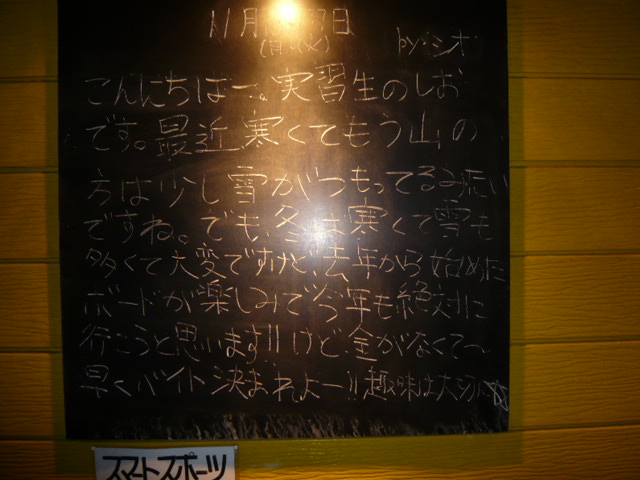 11月 日
by シオ
こんにちはー。実習生のしお
です。最近寒くてもう山の
方は少し雪がつもってるみたい
ですね。でも、冬は寒くて雪も
多くて大変ですけど、去年から始めた
ボードが楽しみで今年も絶対に
行こうと思います!!けど、金がなくて〜
早くバイト決まれよー!!趣味は大切に
スマートスポーツ